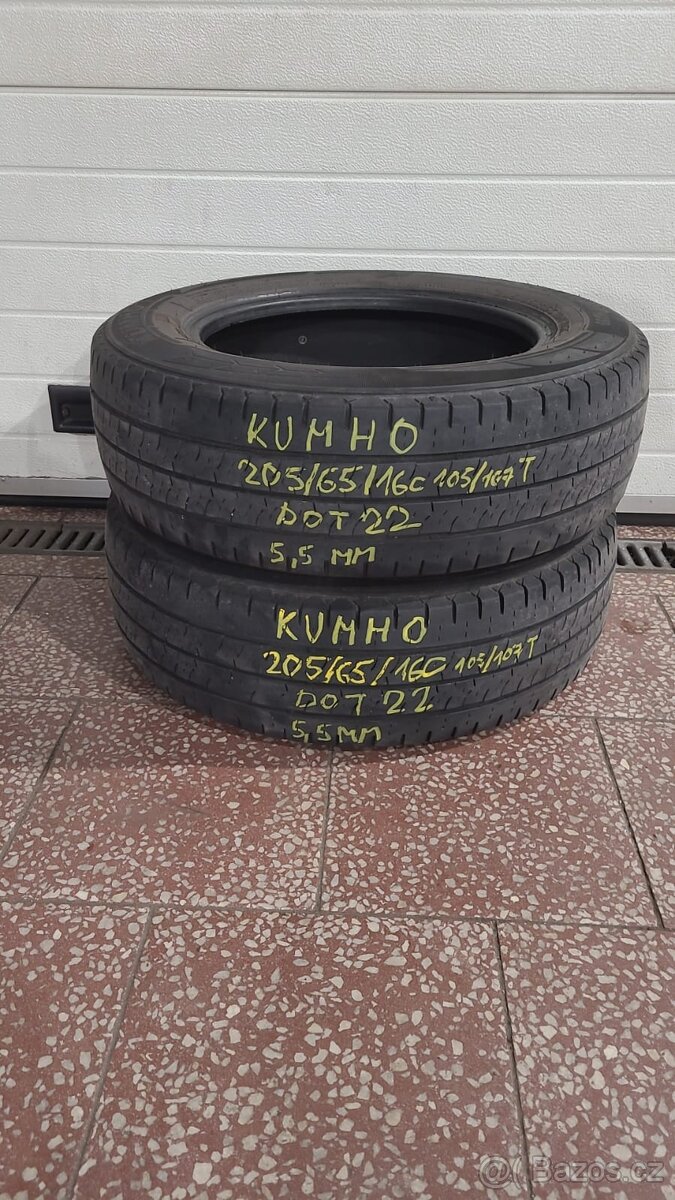 KUMHO
205/65/16C 105/107T
DOT 22
5,5 MM
KUMHO
205/65/16C 105/107T
DOT 22
5,5 MM
@ Bazos.cz